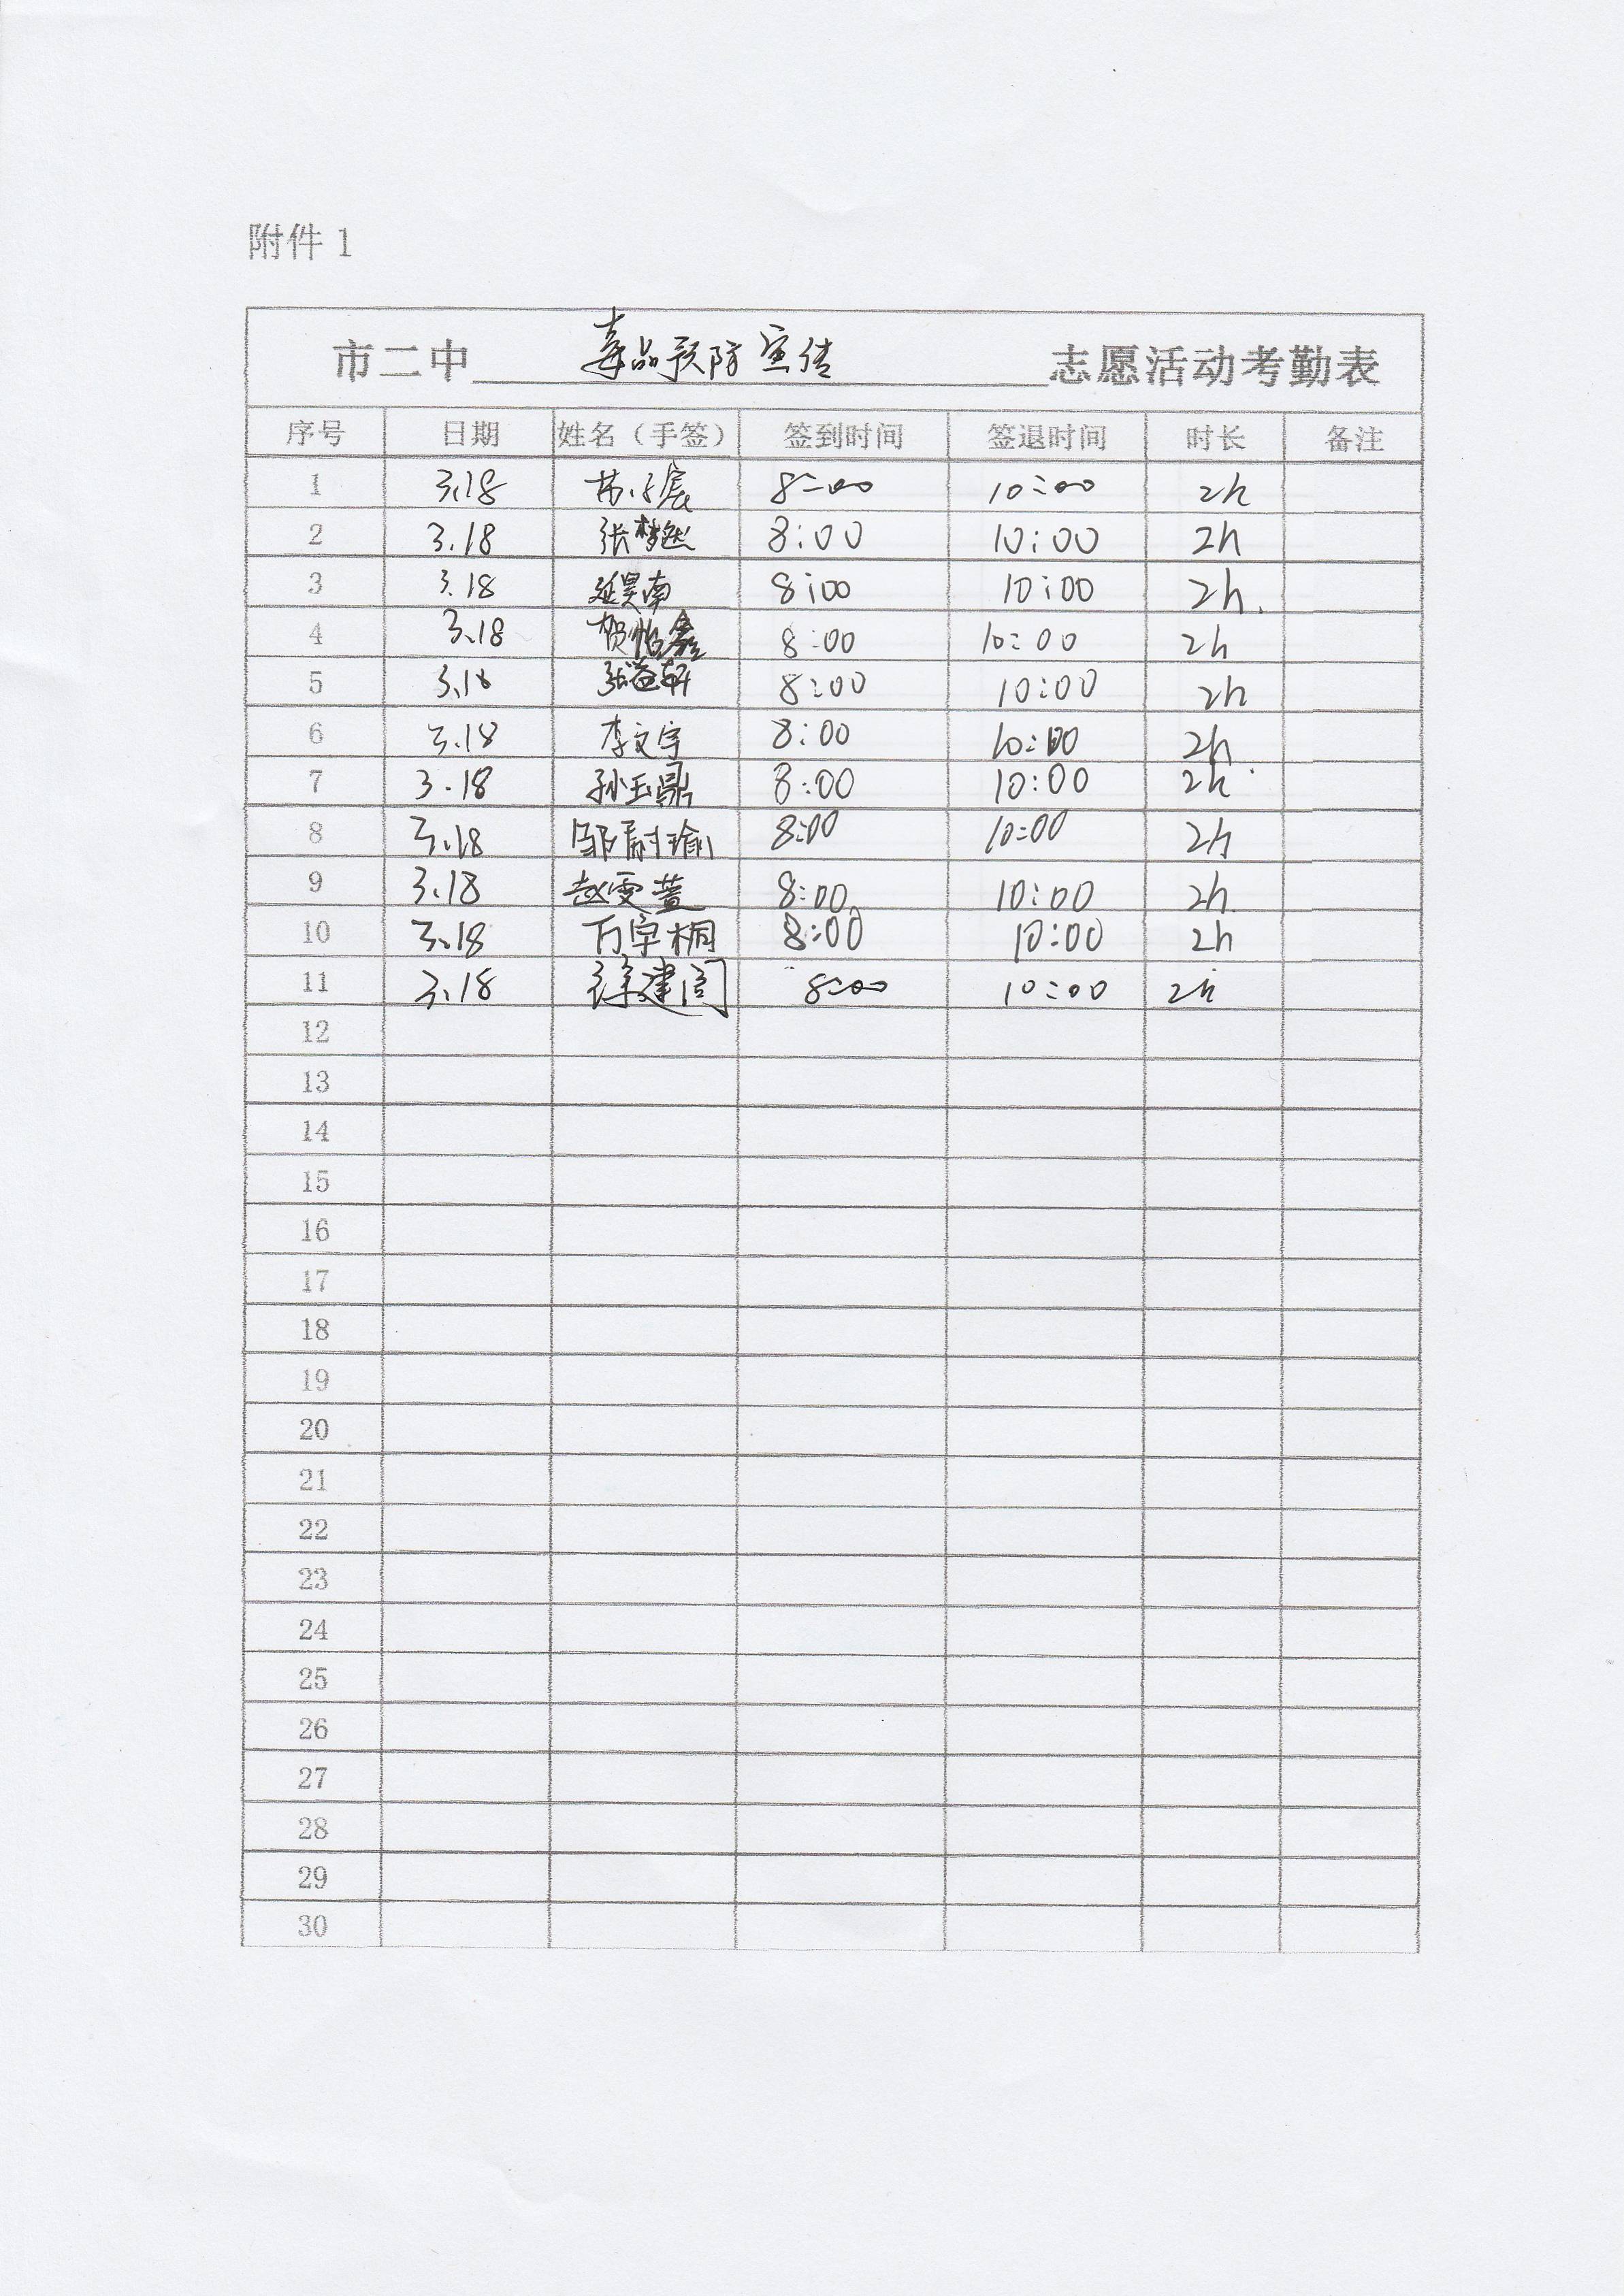 附件 1
市二中 毒品预防宣传 志愿活动考勤表
序号 日期 姓名（手签） 签到时间 签退时间 时长 备注
1 3.18 8:00 10:00 2h
2 3.18 张梦 8:00 10:00 2h
3 3.18 延昊南 8:00 10:00 2h.
4 3.18 贺怡鑫 8:00 10:00 2h
5 3.18 张益轩 8:00 10:00 2h
6 3.18 李文宇 8:00 10:00 2h
7 3.18 孙玉鼎 8:00 10:00 2h
8 3.18 邹尉瑜 8:00 10:00 2h
9 3.18 赵雯萱 8:00 10:00 2h
10 3.18 万宇桐 8:00 10:00 2h
11 3.18 建 8:00 10:00 2h
12
13
14
15
16
17
18
19
20
21
22
23
24
25
26
27
28
29
30